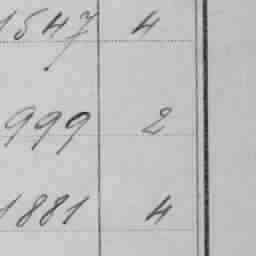 1547 4
999 2
1881 4